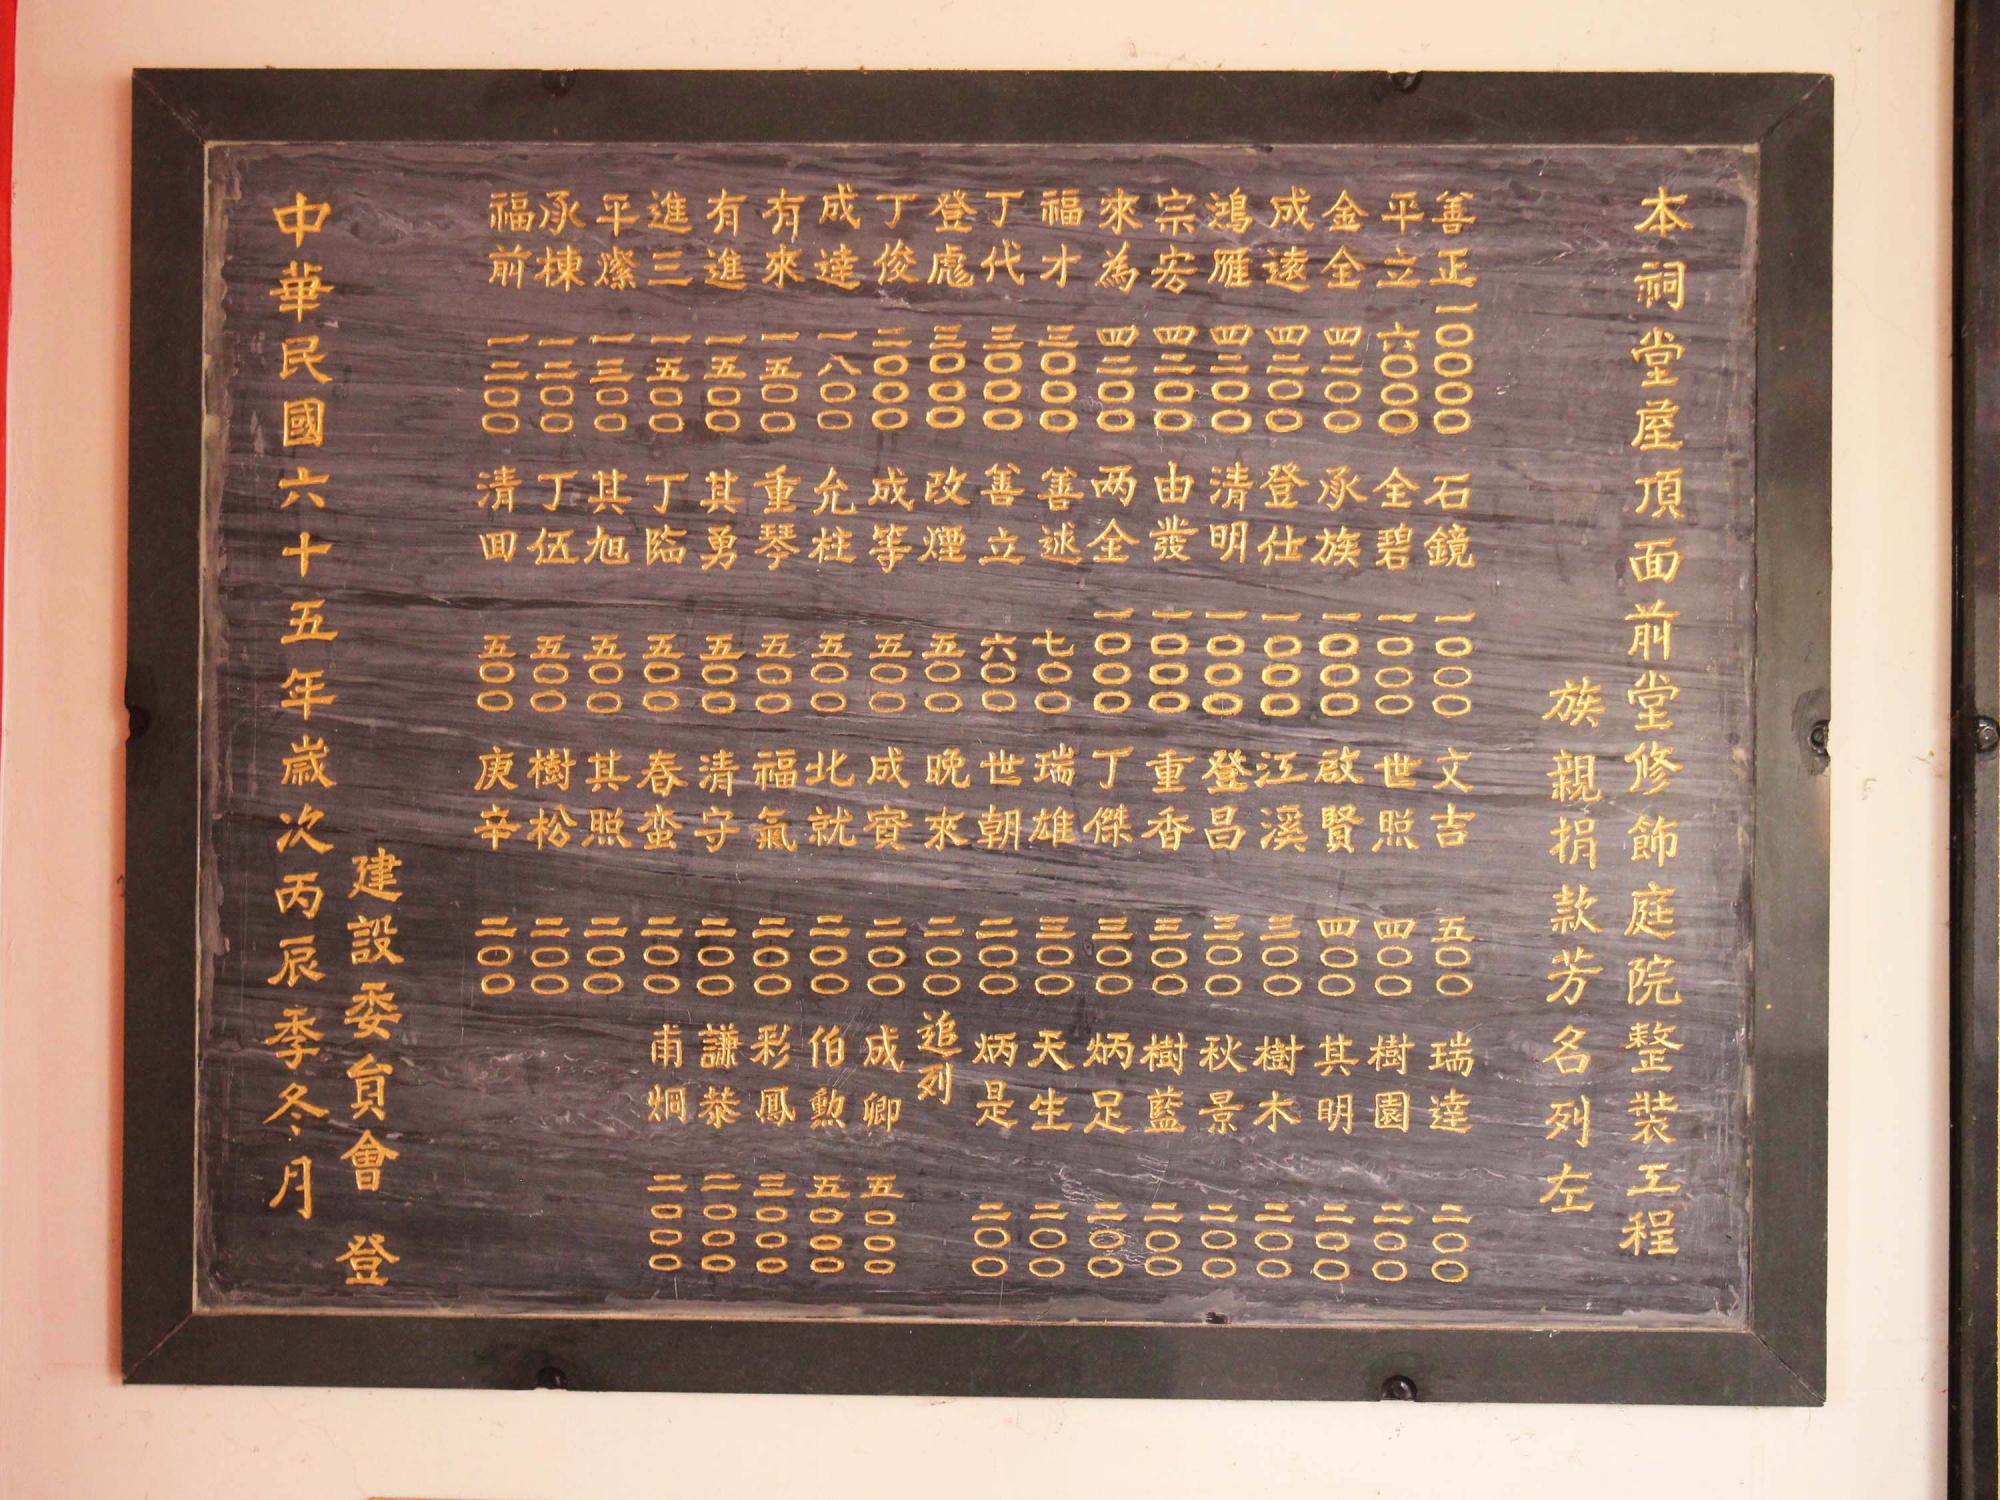 本祠堂屋頂面前堂修飾庭院整裝工程
族親捐款芳名列左
善正 一〇〇〇〇
平立 六〇〇〇
金全 四二〇〇
成遠 四二〇〇
鴻雁 四二〇〇
宗宏 四二〇〇
來為 四二〇〇
福才 三〇〇〇
丁代 三〇〇〇
登彪 三〇〇〇
丁俊 二〇〇〇
成達 一八〇〇
有來 一五〇〇
有進 一五〇〇
進三 一五〇〇
平燦 一三〇〇
承棟 一二〇〇
福前 一二〇〇
石鏡 一〇〇〇
全碧 一〇〇〇
承族 一〇〇〇
登仕 一〇〇〇
清明 一〇〇〇
由發 一〇〇〇
两全 一〇〇〇
善述 七〇〇
善立 六〇〇
改煙 五〇〇
成等 五〇〇
允柱 五〇〇
重琴 五〇〇
其勇 五〇〇
丁臨 五〇〇
其旭 五〇〇
丁伍 五〇〇
清回 五〇〇
文吉 五〇〇
世照 四〇〇
啟賢 四〇〇
江溪 三〇〇
登昌 三〇〇
重香 三〇〇
丁傑 三〇〇
瑞雄 三〇〇
世朝 二〇〇
晚來 二〇〇
成賓 二〇〇
北就 二〇〇
福氣 二〇〇
清守 二〇〇
春蛮 二〇〇
其照 二〇〇
樹松 二〇〇
庚辛 二〇〇
瑞達 二〇〇
樹園 二〇〇
其明 二〇〇
樹木 二〇〇
秋景 二〇〇
樹藍 二〇〇
炳足 二〇〇
天生 二〇〇
炳是 二〇〇
追列
成卿 五〇〇〇
伯勲 五〇〇〇
彩鳳 三〇〇〇
謙恭 二〇〇〇
甫烱 二〇〇〇
建設委員會 登
中華民國六十五年歲次丙辰季冬月